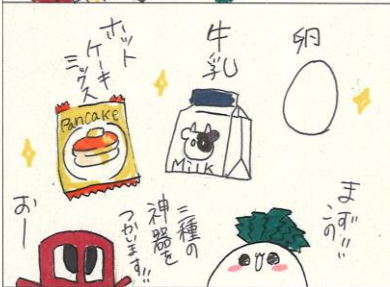 卵
牛乳
Milk
ホット
ケーキ
ミックス
Pancake
まず!!
この
三種の
神器を
つかいます!!
おー